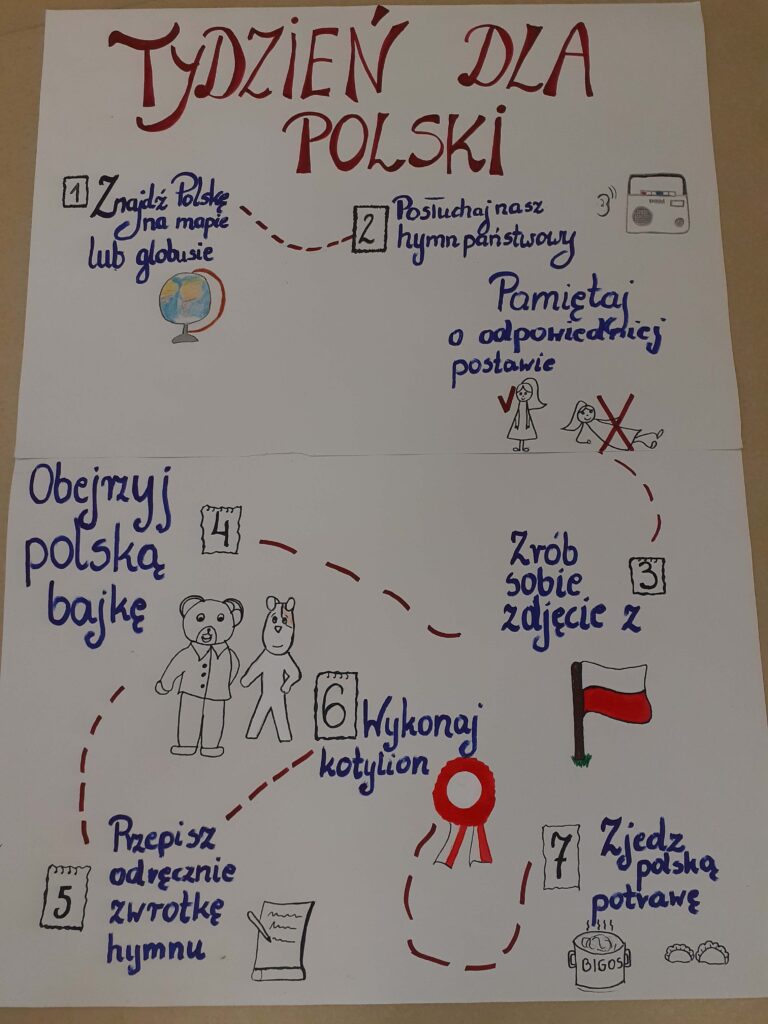 TYDZIEŃ DLA
POLSKI
1
Znajdź Polskę
na mapie
lub globusie
2
Posłuchaj nasz
hymn państwowy
Pamiętaj
o odpowiedniej
postawie
3
Zrób
sobie
zdjęcie z
4
Obejrzyj
polską
bajkę
5
Przepisz
odręcznie
zwrotkę
hymnu
6
Wykonaj
kotylion
7
Zjedz
polską
potrawę
BIGOS